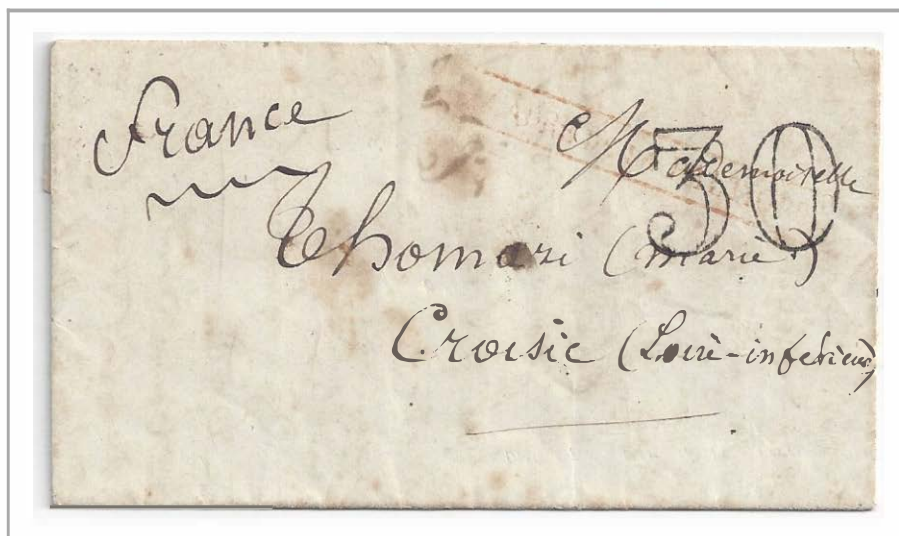 France
Mademoiselle
30
Thomazi (Marie)
Croisic (Loire-inférieure)